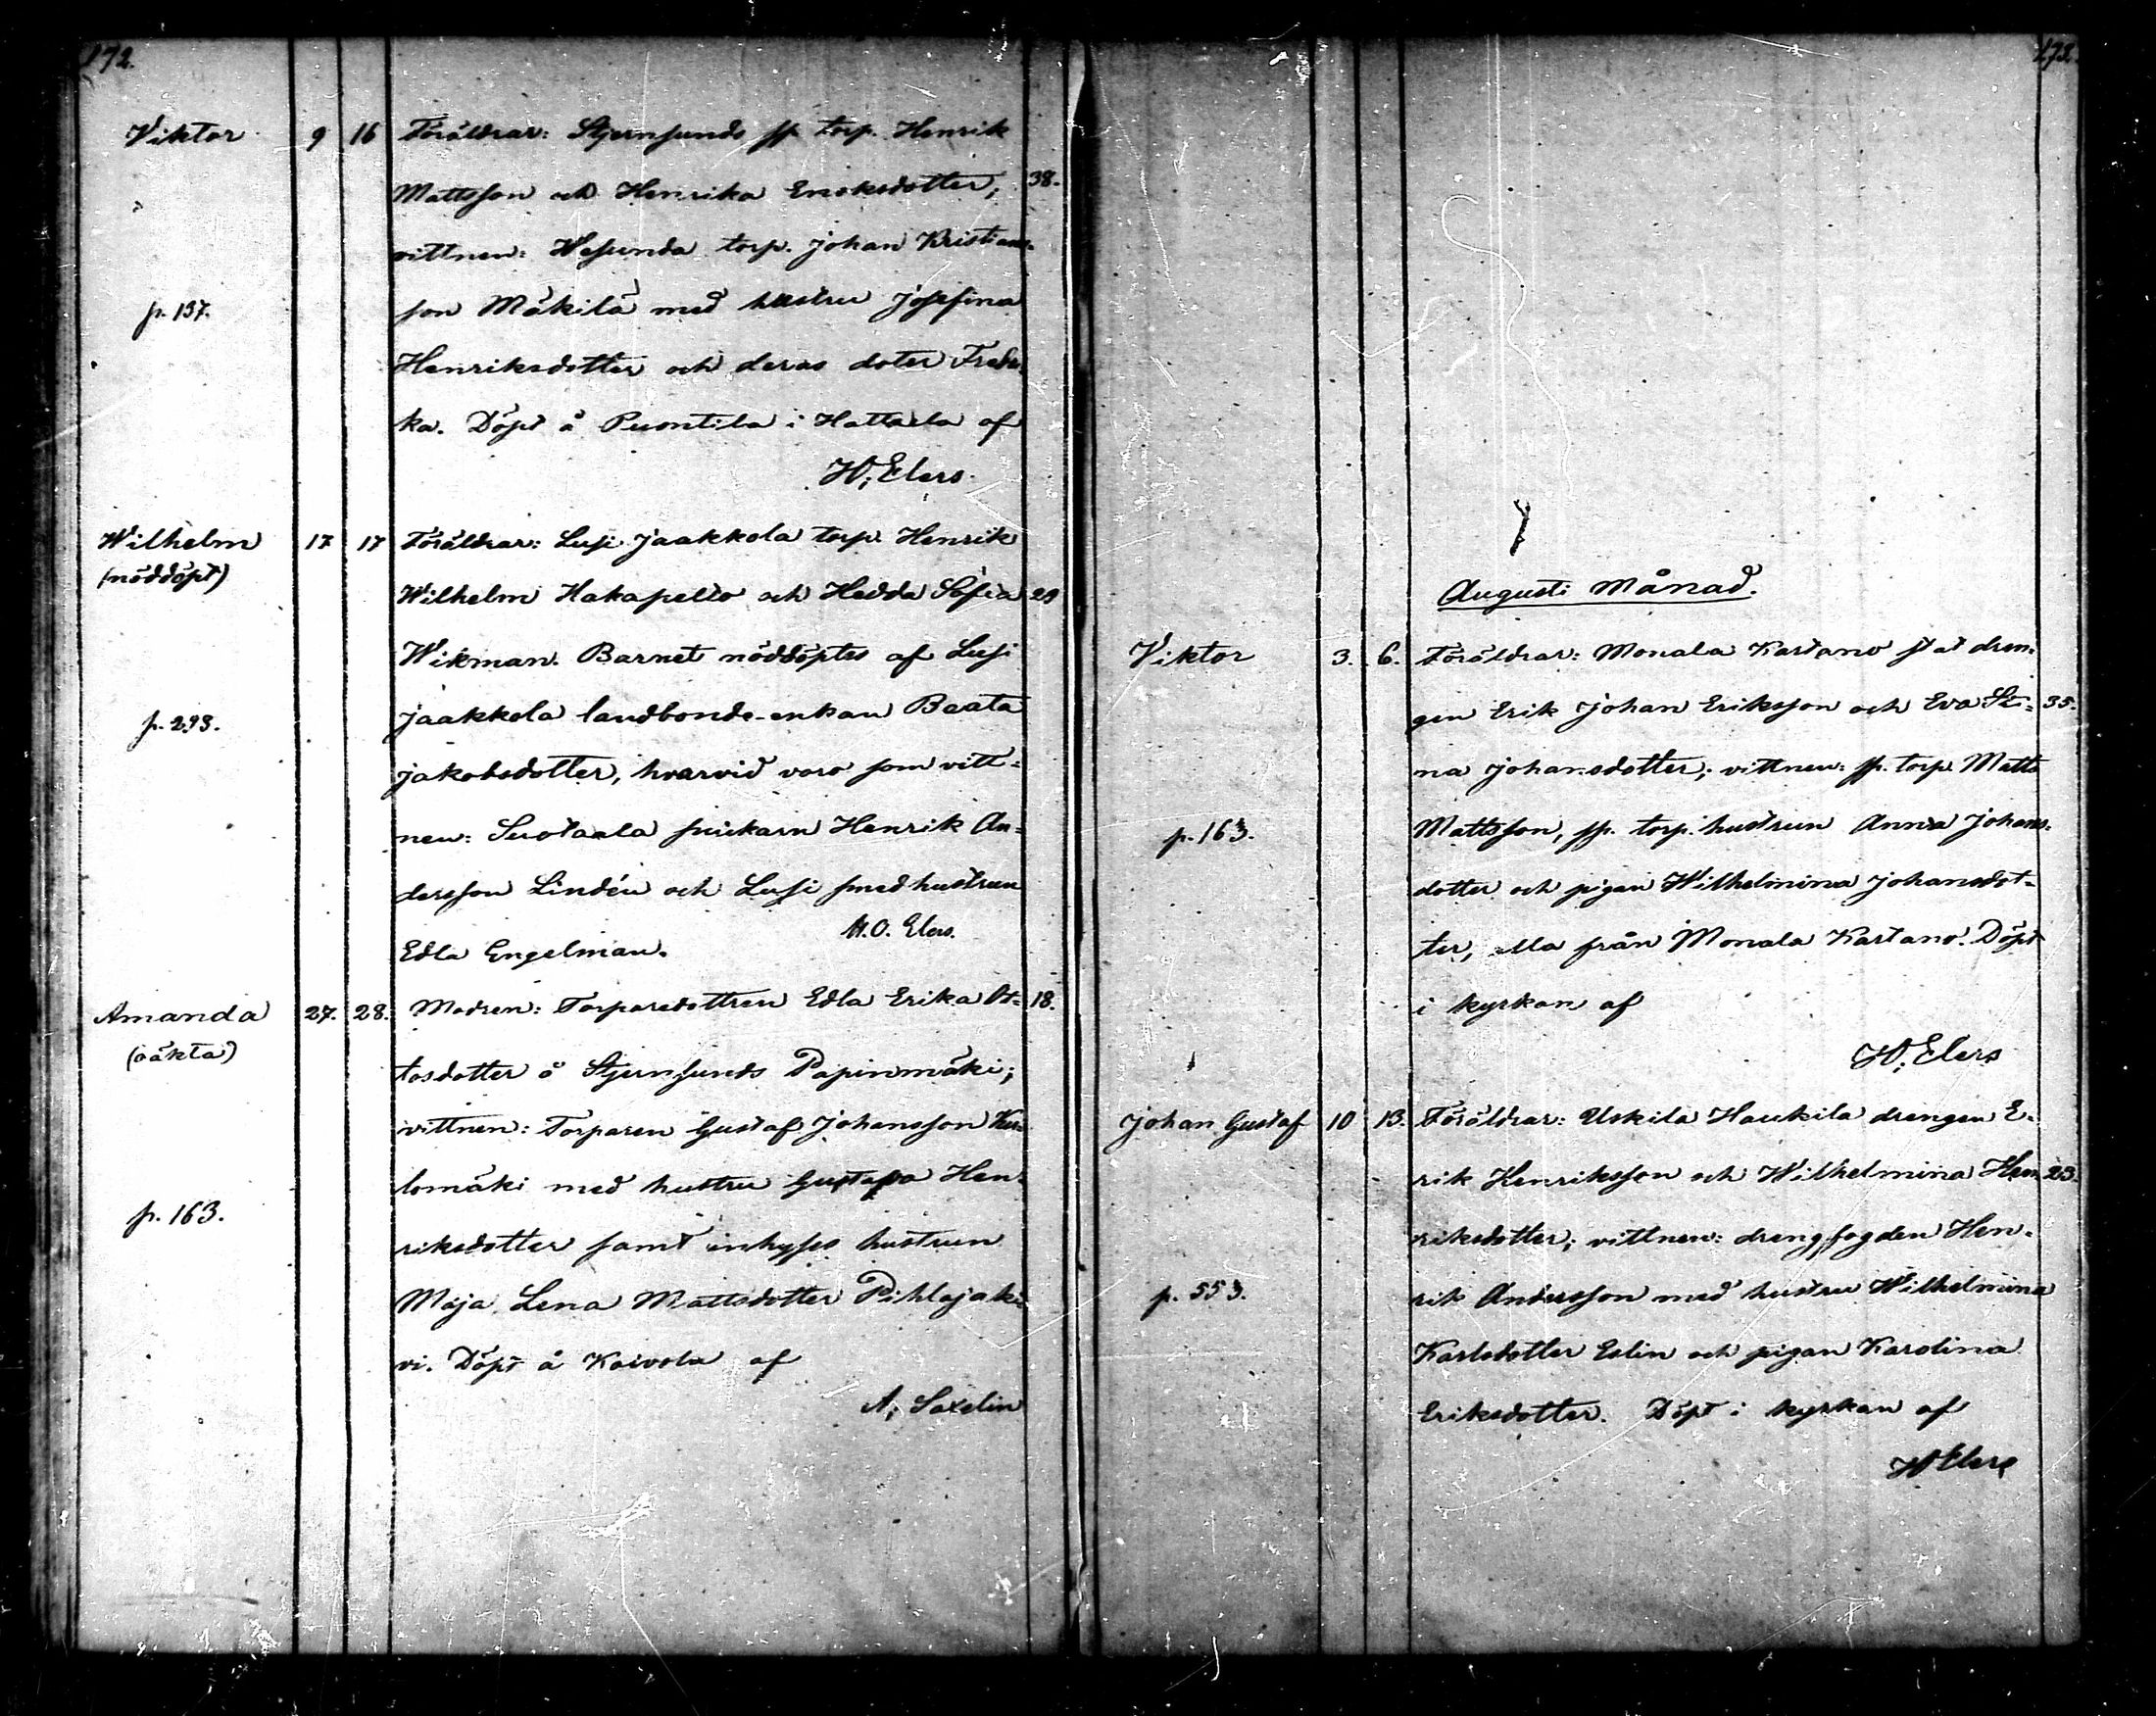 172.
Viktor 9 16 Föräldrar: Stjernsunds sp. torp. Henrik
Mattsson och Henrika Eriksdotter; 38.
vittnen: Wesunda torp. Johan Kristians-
p. 137. son Mäkilä med hustru Josefina
Henriksdotter och deras doter Fredri-
ka. Döpt å Puontila i Hattula af
W; Elers.
Wilhelm 17 17 Föräldrar: Lusi Jaakkola torp. Henrik
(nöddöpt)
Wilhelm Hakapelto och Hedda Sofia 29
Wikman. Barnet nöddöptes af Lusi
p. 293. Jaakkola landbonde-enkan Beata
Jakobsdotter, hvarvid voro som vitt-
nen: Suotaala Henrik An-
dersson Lindén och Lusi smedhustrun
M.O. Elers.
Edla Engelman.
Amanda 27. 28. Modren: Torparedottren Edla Erika Ot- 18.
(oäkta)
tosdotter å Stjernsunds Papinmäki;
vittnen: Torparen Gustaf Johansson
lomäki med hustru Gustava Hen-
p. 163. riksdotter samt inhyses hustrun
Maja Lena Mattsdotter Pihlajaki-
vi. Döpt å Koivola af
A; Saxelin
173.
Augusti Månad.
Viktor 3. 6. Föräldrar: Monala Kartano stat dren-
gen Erik Johan Eriksson och Eva Sti- 35.
na Johansdotter; vittnen: sp. torp. Matts
p. 163. Mattsson, sp. torp. hustrun Anna Johans-
dotter och pigan Wilhelmina Johansdot-
ter, alla från Monala Kartano. Döpt
i kyrkan af
W; Elers
Johan Gustaf 10 13. Föräldrar: Uskila Haukila drengen E-
rik Henriksson och Wilhelmina Hen- 23.
riksdotter; vittnen: drengfogden Hen-
p. 553. rik Andersson med hustru Wilhelmina
Karlsdotter Eslin och pigan Karolina
Eriksdotter. Döpt i kyrkan af
W Elers